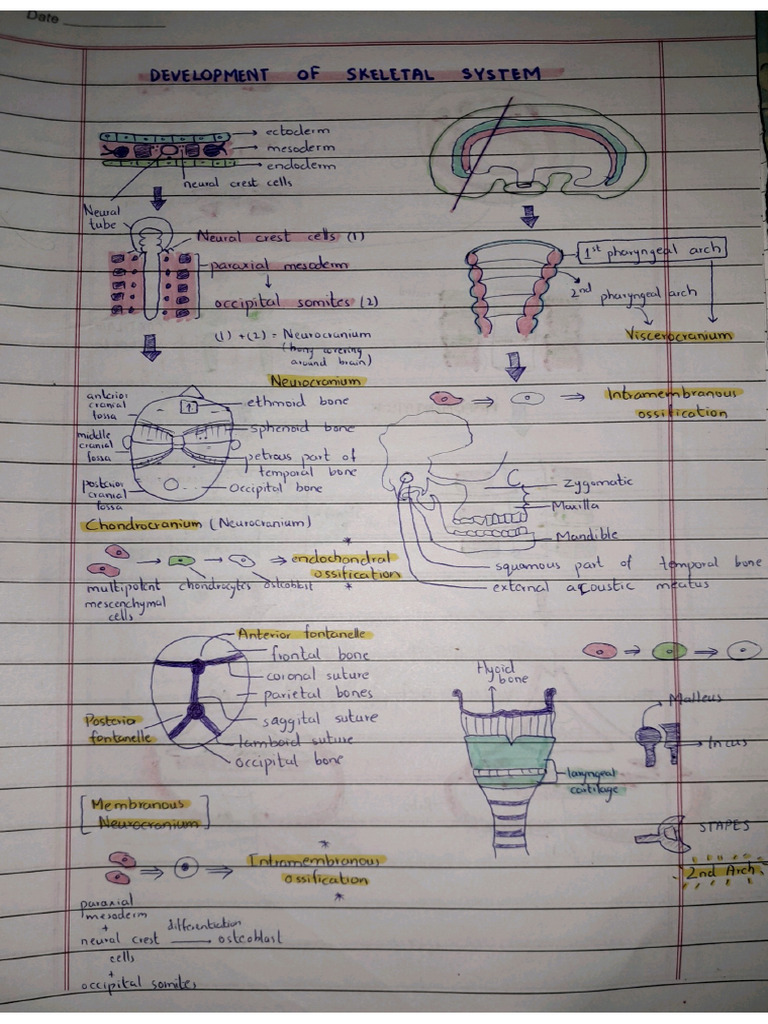 Date
DEVELOPMENT OF SKELETAL SYSTEM
ectoderm
mesoderm
endoderm
neural crest cells
Neural
tube
Neural crest cells (1)
paraxial mesoderm
occipital somites (2)
(1) + (2) = Neurocranium
(bony covering
around brain)
Neurocranium
anterior
cranial
fossa
middle
cranial
fossa
posterior
cranial
fossa
ethmoid bone
sphenoid bone
petrous part of
temporal bone
Occipital bone
Chondrocranium (Neurocranium)
* endochondral
ossification *
multipotent
mescenchymal
cells
chondrocytes
osteoblst
Anterior fontanelle
frontal bone
coronal suture
parietal bones
saggital suture
lamboid suture
occipital bone
Posterior
fontanelle
[Membranous
Neurocranium]
*
Intramembranous
ossification
*
paraxial
mesoderm
+
neural crest
cells
+
occipital somites
differentiation
osteoblast
1st pharyngeal arch
2nd pharyngeal arch
Viscerocranium
Intramembranous
ossification
Zygomatic
Maxilla
Mandible
squamous part of temporal bone
external acoustic meatus
Hyoid
bone
laryngeal
cartilage
Malleus
Incus
STAPES
2nd Arch